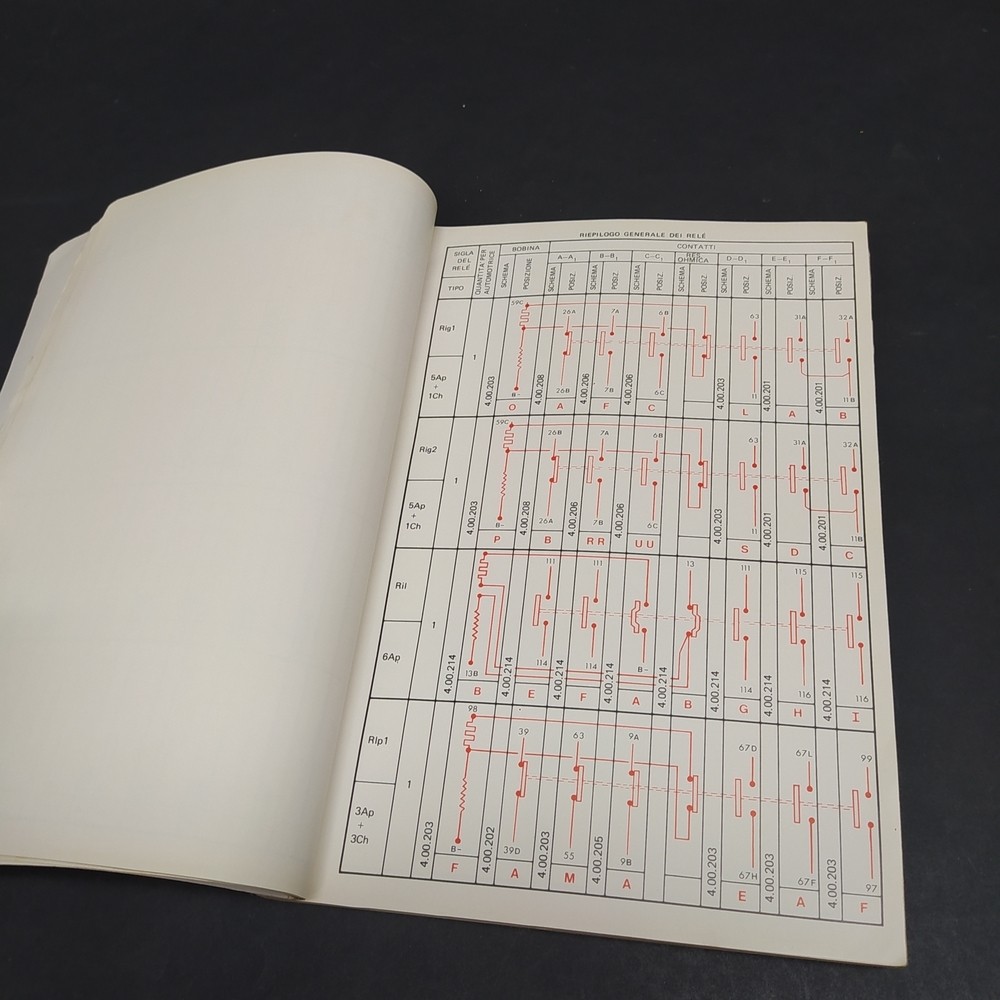 RIEPILOGO GENERALE DEI RELÉ
SIGLA DEL RELÉ
TIPO
QUANTITÀ PER AUTOMOTRICE
BOBINA
SCHEMA
POSIZIONE
CONTATTI
A–A1
B–B1
C–C1
RES. OHMICA
D–D1
E–E1
F–F1
SCHEMA POSIZ. SCHEMA POSIZ. SCHEMA POSIZ. SCHEMA SCHEMA POSIZ. SCHEMA POSIZ. SCHEMA POSIZ.
Rig1
5Ap
+
1Ch
1
59C 26A 7A 6B 63 31A 32A
4.00.203 4.00.208 4.00.206 4.00.206 4.00.203 4.00.201 4.00.201
B– 26B 7B 6C 11 11B
O A F C L A B
Rig2
5Ap
+
1Ch
1
59C 26B 7A 6B 63 31A 32A
4.00.203 4.00.208 4.00.206 4.00.206 4.00.203 4.00.201 4.00.201
B– 26A 7B 6C 11 11B
P B RR UU S D C
Ril
6Ap
1
111 111 13 111 115 115
4.00.214 4.00.214 4.00.214 4.00.214 4.00.214 4.00.214 4.00.214
13B 114 114 B– 114 116 116
B E F A B G H I
Rlp1
3Ap
+
3Ch
1
98 39 63 9A 67D 67L 99
4.00.203 4.00.202 4.00.203 4.00.205 4.00.203 4.00.203 4.00.203
B– 39D 55 9B 67H 67F 97
F A M A E A F